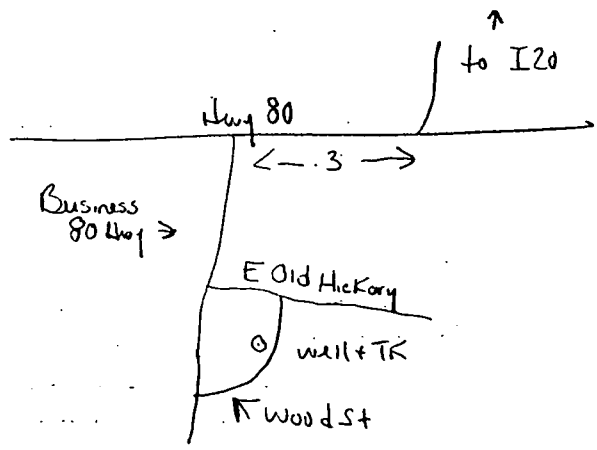 to I20
Hwy 80
.3
Business
80 Hwy
E Old Hickory
well + TK
Wood St